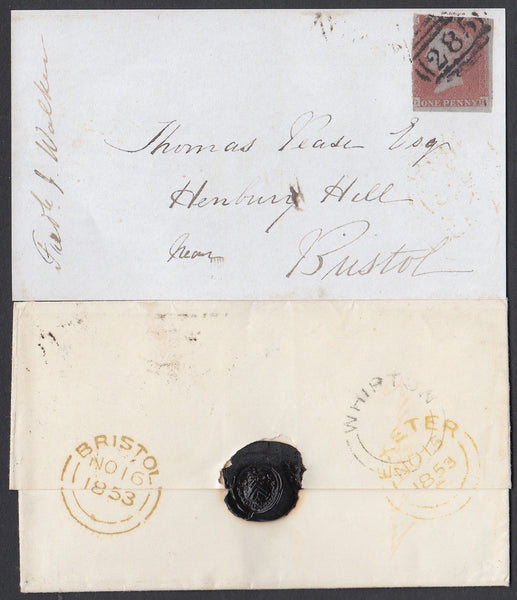 Fredk J Walker
285
ONE PENNY
Thomas Pease Esq
Henbury Hill
Near
Bristol
BRISTOL
NO 16
1853
WHIPTON
EXETER
NO 15
1853